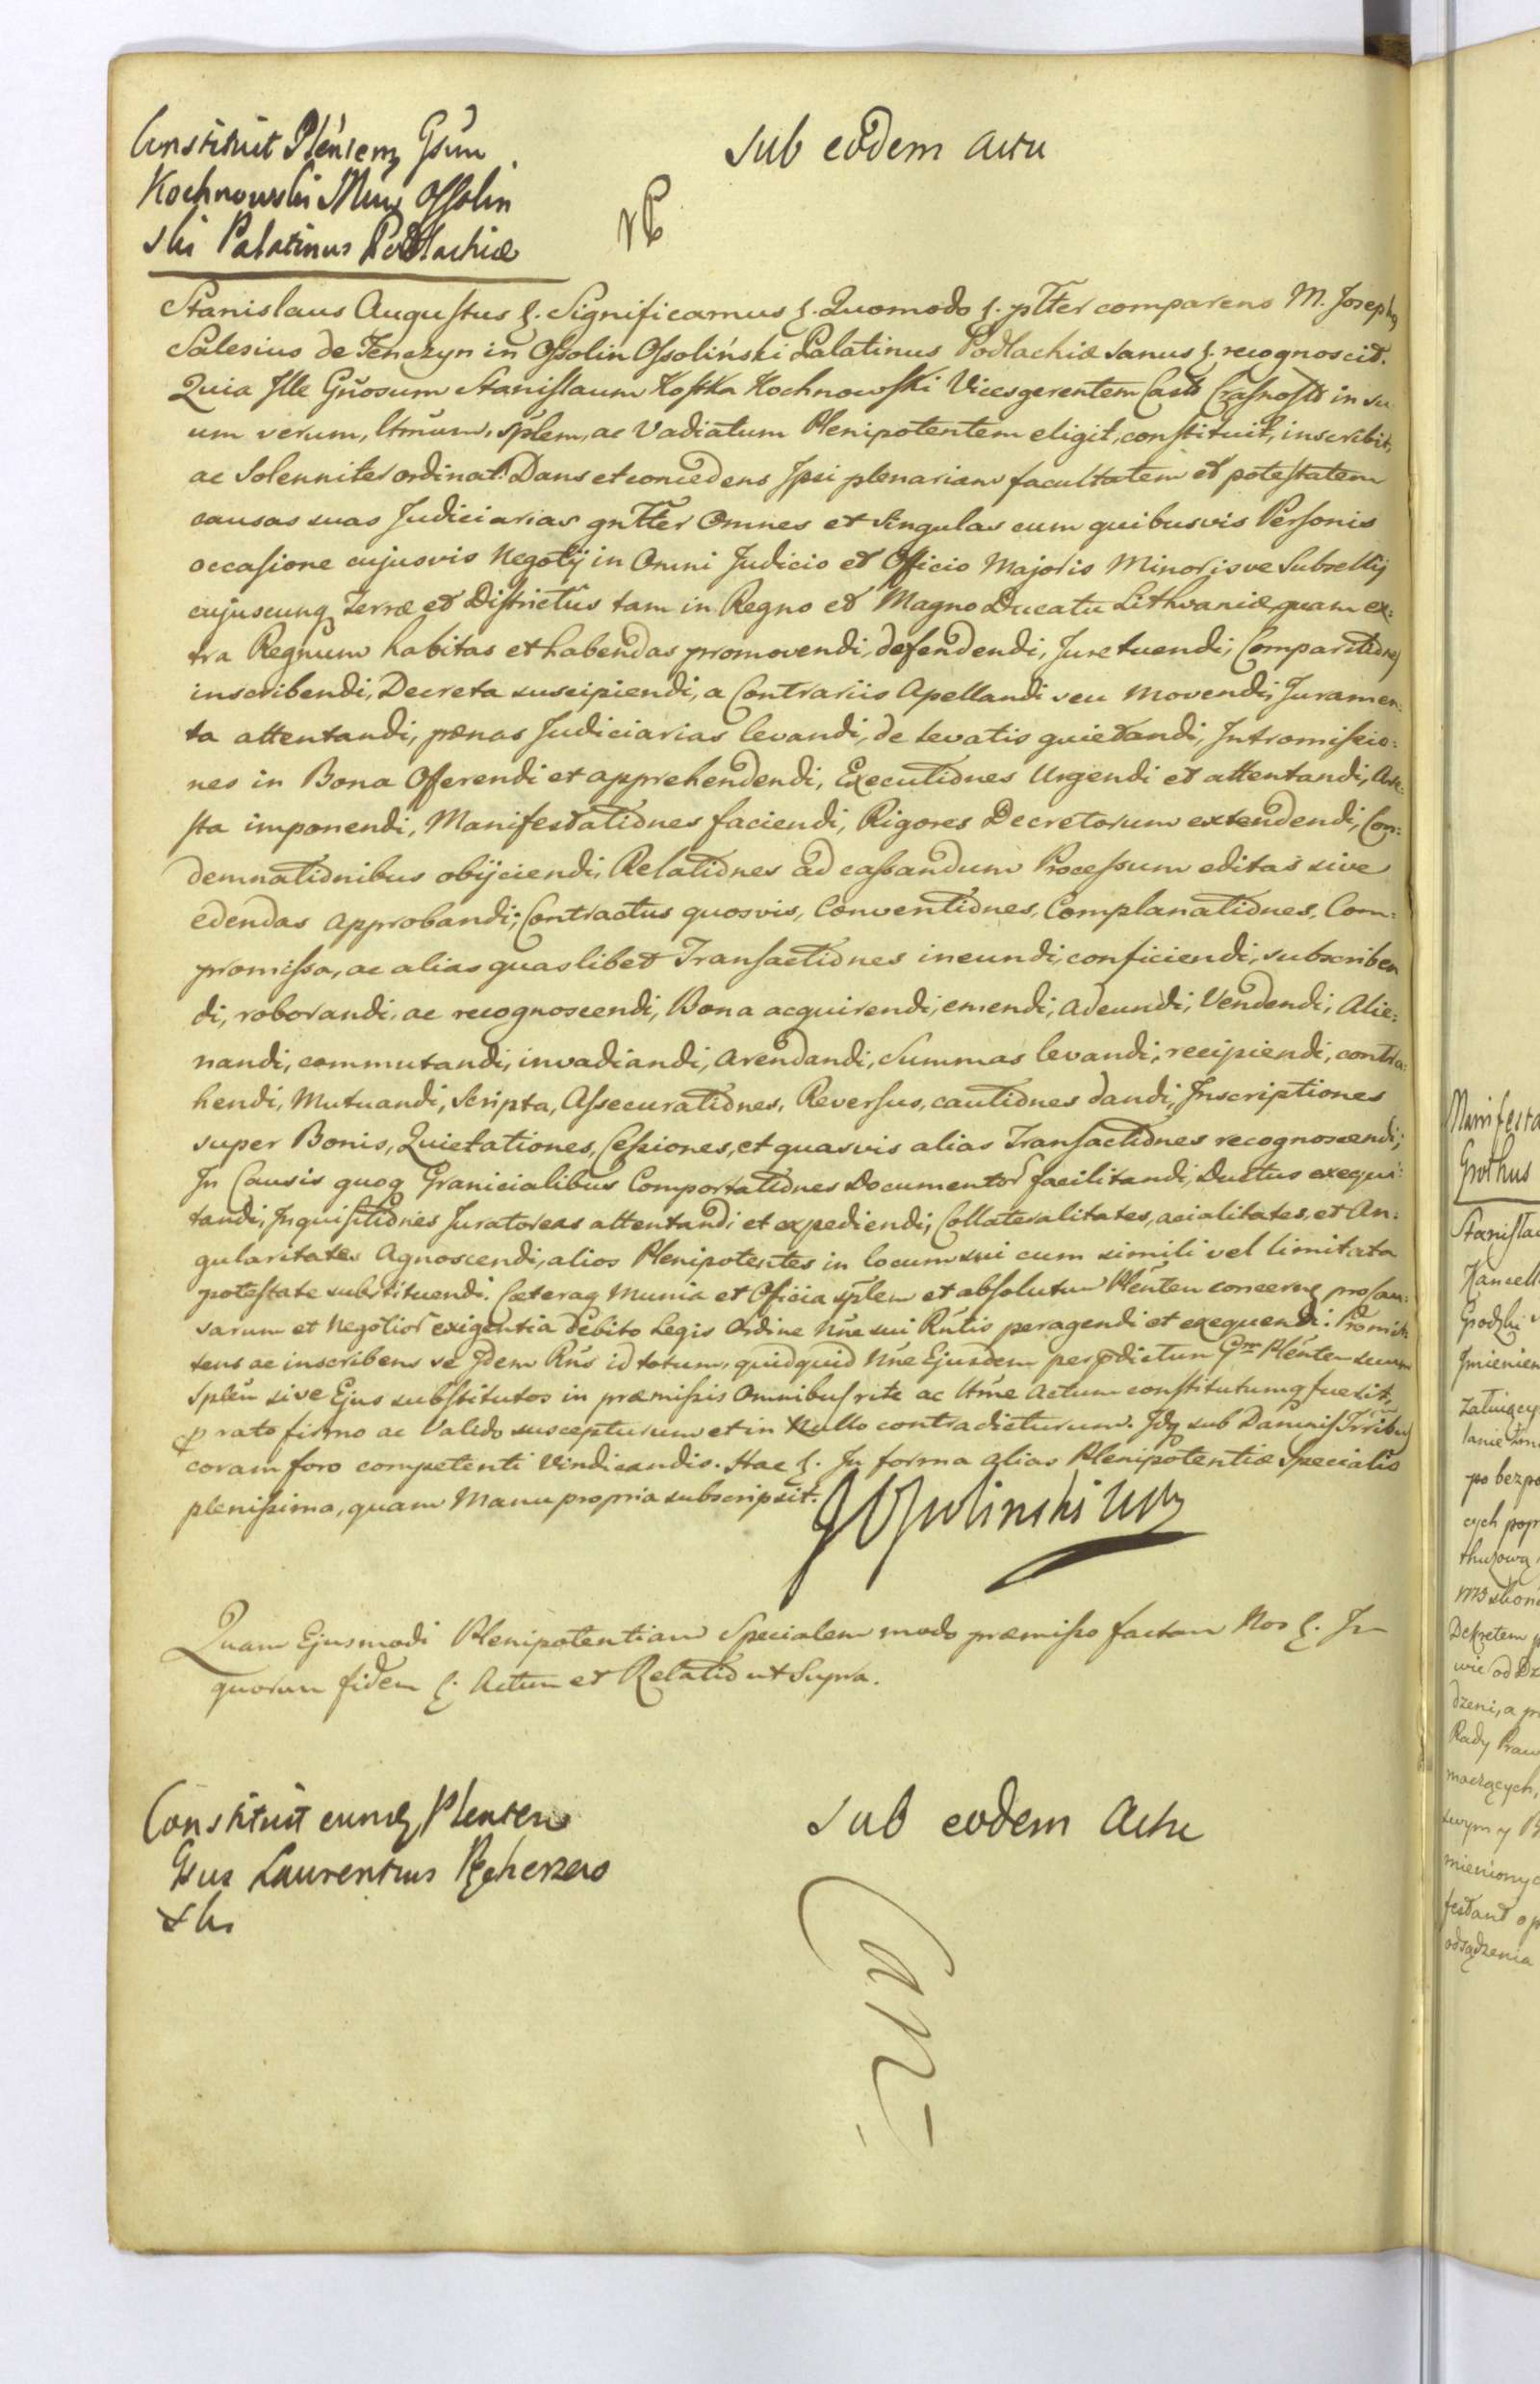 Constituit Plentem Gsum
Kochnowski Mus Ossolin
ski Palatinus Podlachiæ
Sub eodem actu
Stanislaus Augustus &. Significamus &. Quomodo &. pltter comparens M. Josephus
Salesius de Tenczyn in Ossolin Ossoliński Palatinus Podlachiæ sanus &. recognoscit.
Quia Ille Gnosum Stanislaum Kostka Kochnowski Vicesgerentem Cast Crasnost in su
um verum, ltmum, splem, ac Vadiatum Plenipotentem eligit, constituit, inscribit,
ac Solenniter ordinat. Dans et concedens Ipsi plenariam facultatem et potestatem
causas suas Judiciarias gntter Omnes et Singulas cum quibusvis Personis
occasione cujusvis Negotij in Omni Judicio et Officio Majoris Minorisve Subsellij
cujuscunq Terræ et Districtus tam in Regno et Magno Ducatu Lithvaniæ quam ex:
tra Regnum habitas et habendas promovendi, defendendi, Jure tuendi, Comparitiones
inscribendi, Decreta suscipiendi, a Contrariis Apellandi seu Movendi, Juramen:
ta attentandi, pœnas Judiciarias levandi, de levatis quietandi, Intromissio:
nes in Bona Offerendi et apprehendendi, Executiones Urgendi et attentandi, Are:
sta imponendi, Manifestationes faciendi, Rigores Decretorum extendendi, Con:
demnationibus obijciendi, Relationes ad cassandum Processum editas sive
edendas approbandi; Contractus quosvis, Conventiones, Complanationes, Com:
promissa, ac alias quaslibet Transactiones ineundi, conficiendi, subscriben
di, roborandi, ac recognoscendi, Bona acquirendi, emendi, adeundi, Vendendi, Alie:
nandi, commutandi, invadiandi, arendandi, Summas levandi, recipiendi, contra:
hendi, Mutuandi, Scripta, Assecurationes, Reversus, cautiones dandi, Inscriptiones
super Bonis, Quietationes, Cessiones, et quasvis alias Transactiones recognoscendi;
In Causis quoq Granicialibus Comportationes Documentor facilitandi, Ductus exequi:
tandi, Inquisitiones Juratoreas attentandi et expediendi, Collateralitates, acialitates, et An:
gularitates Agnoscendi, alios Plenipotentes in locum sui cum simili vel limitata
potestate substituendi. Cæteraq Munia et Officia splem et absolutum Plentem concerne pro cau:
sarum et Negotior exigentia debito Legis Ordine Nne sui Rntis peragendi et exequendi. Promit:
tens ac inscribens se Idem Rns id totum, quidquid Nne Ejusdem per pdictum Gm Plentem suum
Splem sive Ejus substitutos in præmissis Omnibus rite ac ltme Actum constitutumq fuerit,
p rato firmo ac Valido suscepturum et in Nullo contradicturum. Idq sub Damnis Trribus
coram foro competenti Vindicandis. Hac &. In forma alias Plenipotentiæ Specialis
plenissima, quam Manu propria subscripsit.
Quam Ejusmodi Plenipotentiam Specialem modo præmisso factam Nos &. In
quorum fidem &. Actum et Relatio ut Supra.
Constituit eumq Plentem
Gsus Laurentius
ski
Sub eodem Actu
Manifesta
Grothus
Stanislau
Kancell
Grodzki
Imienien
po bezpo
cych popr
thuzową
Dekretem
wie od Dz
dzeni, a pr
Rady Praw
maczących,
swym y B
mieniony
festant o p
odsądzenia